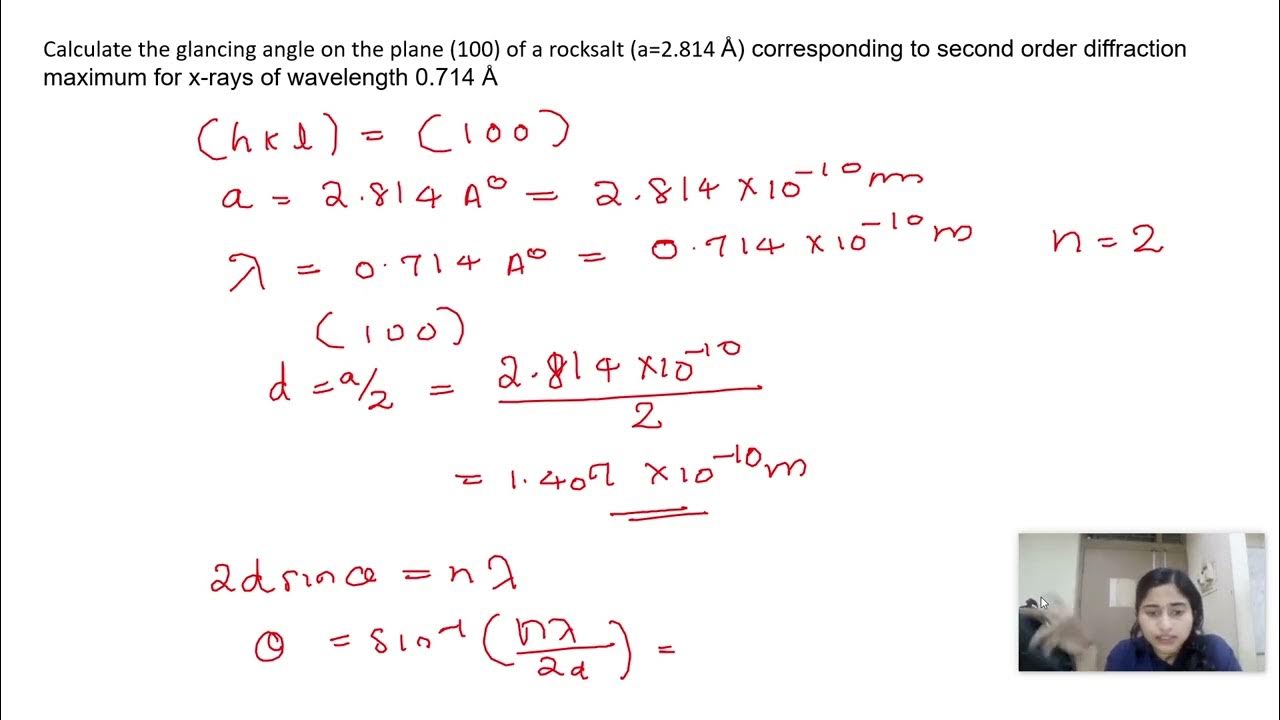 Calculate the glancing angle on the plane (100) of a rocksalt (a=2.814 Å) corresponding to second order diffraction
maximum for x-rays of wavelength 0.714 Å
(hkl) = (100)
a = 2.814 A° = 2.814 × 10⁻¹⁰ m
λ = 0.714 A° = 0.714 × 10⁻¹⁰ m n = 2
(100)
d = a/2 = 2.814 × 10⁻¹⁰ / 2
= 1.407 × 10⁻¹⁰ m
2d sin θ = nλ
θ = sin⁻¹ (nλ/2d) =